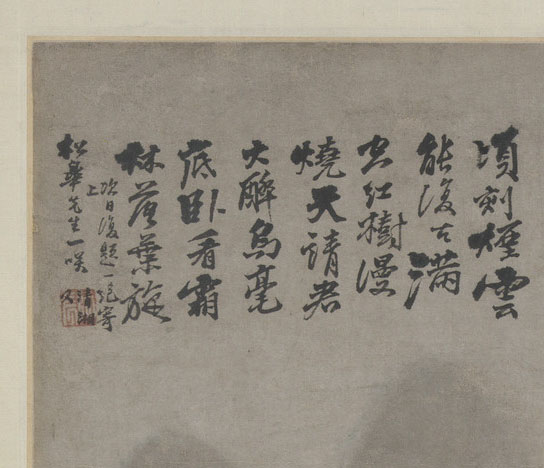 頃刻煙雲
能復古滿
空紅樹漫
燒天請君
大醉烏毫
底臥看霜
林落葉旋
次日復題一絕寄
上
松皋先生一咲